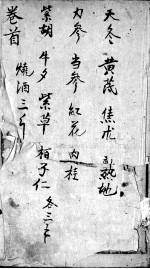 天冬 黄茂 焦术 熟地
力参 当参 紅花 肉桂
紫胡 牛夕 紫草 柏子仁 各三个
燒酒三斤
卷首